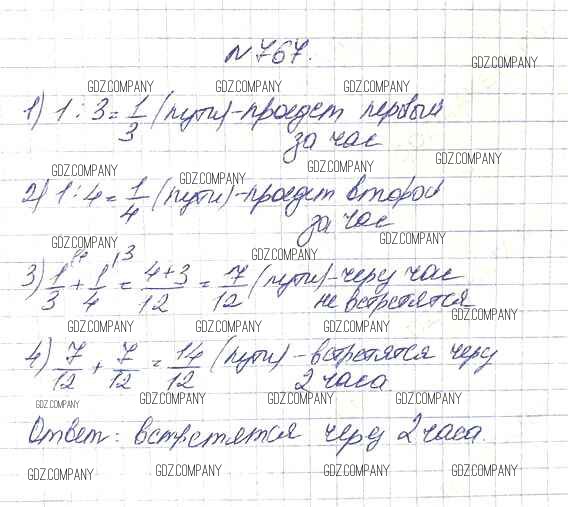 №767.
GDZ.COMPANY
GDZ.COMPANY GDZ.COMPANY GDZ.COMPANY
1) 1 : 3 = 1/3 (пути) - проедет первый
за час
GDZ.COMPANY GDZ.COMPANY GDZ.COMPANY GDZ.COMPANY
2) 1 : 4 = 1/4 (пути) - проедет второй
за час
GDZ.COMPANY GDZ.COMPANY GDZ.COMPANY GDZ.COMPANY
3) 1/3 + 1/4 = 4+3/12 = 7/12 (пути) - через час
не встретятся
GDZ.COMPANY GDZ.COMPANY GDZ.COMPANY GDZ.COMPANY
4) 7/12 + 7/12 = 14/12 (пути) - встретятся через
2 часа
GDZ.COMPANY GDZ.COMPANY GDZ.COMPANY GDZ.COMPANY
Ответ: встретятся через 2 часа.
GDZ.COMPANY GDZ.COMPANY GDZ.COMPANY GDZ.COMPANY